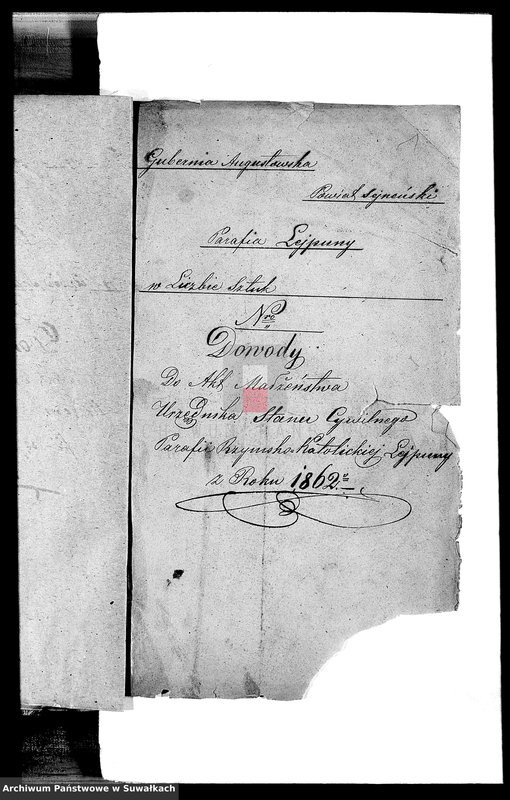 Gubernia Augustowska
Powiat Sejneński
Parafia Lejpuny
w Liczbie Sztuk
Nro
Dowody
Do Akt Małżeństwa
Urzędnika Stanu Cywilnego
Parafii Rzymsko Katolickiej Lejpuny
z Roku 1862
Archiwum Państwowe w Suwałkach